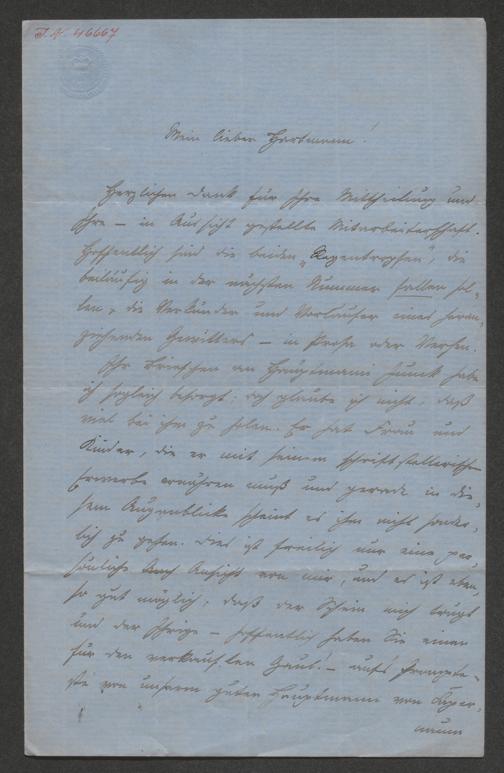 J. N. 46667
Mein lieber Hartmann!
Herzlichen Dank für Ihre Mittheilung und
Ihre – in Aussicht gestellte Mitarbeiterschaft.
Hoffentlich sind die beiden „Regentropfen, die
beiläufig in der nächsten Nummer fallen sol-
len, die Verkünder und Vorläufer eines heran-
ziehenden Gewitters – in Prosa oder Versen.
Ihr Briefchen an Hauptmann Junck habe
ich sogleich besorgt; doch glaube ich nicht, daß
viel bei ihm zu holen. Er hat Frau und
Kinder, die er mit seinem schriftstellerischen
Erwerbe ernähren muß und gerade in die-
sem Augenblicke scheint es ihm nicht sonder-
lich zu gehen. Dies ist freilich nur eine per-
sönliche Ansicht von mir, und es ist eben
so gut möglich, daß der Schein mich trügt
und der Ihrige – hoffentlich haben Sie einen
für den verkauften Gaul! – aufs prompte-
ste von unserem guten Hauptmann von Kaper-
naum